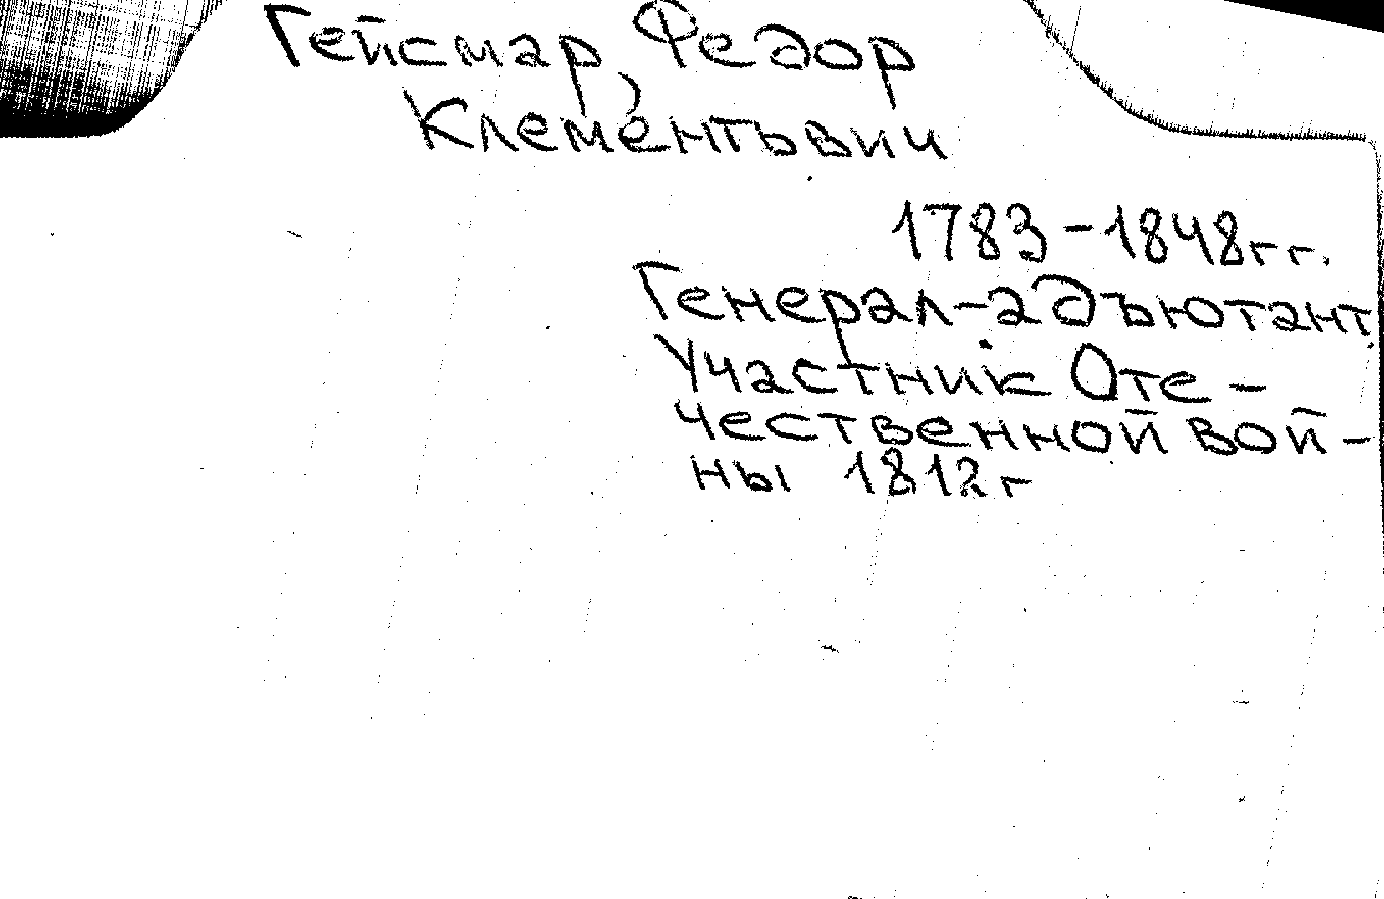 Гейсмар, Федор
Клементьвич
1783-1848гг.
Генерал-адъютант
Участник Оте-
чественной вой-
ны 1812г